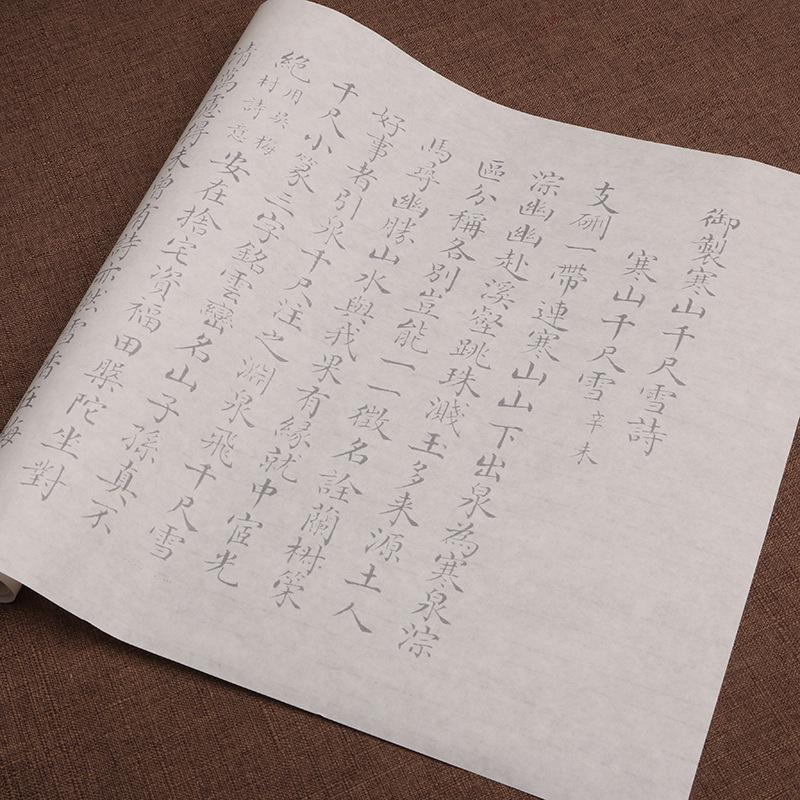 御製寒山千尺雪詩
寒山千尺雪 辛未
支硎一帶連寒山山下出泉為寒泉淙
淙幽幽赴溪壑跳珠濺玉多来源土人
區分稱各別豈能一一徵名詮蘭椾策
馬尋幽勝山水與我果有緣就中宧光
好事者引泉千尺注之淵泉飛千尺雪
千尺小篆三字銘雲巒名山子孫真不
絕 用吳梅村詩意 安在捨宅資福田槃陀坐對
清萬慮得未曾有詩亦然雪香在梅